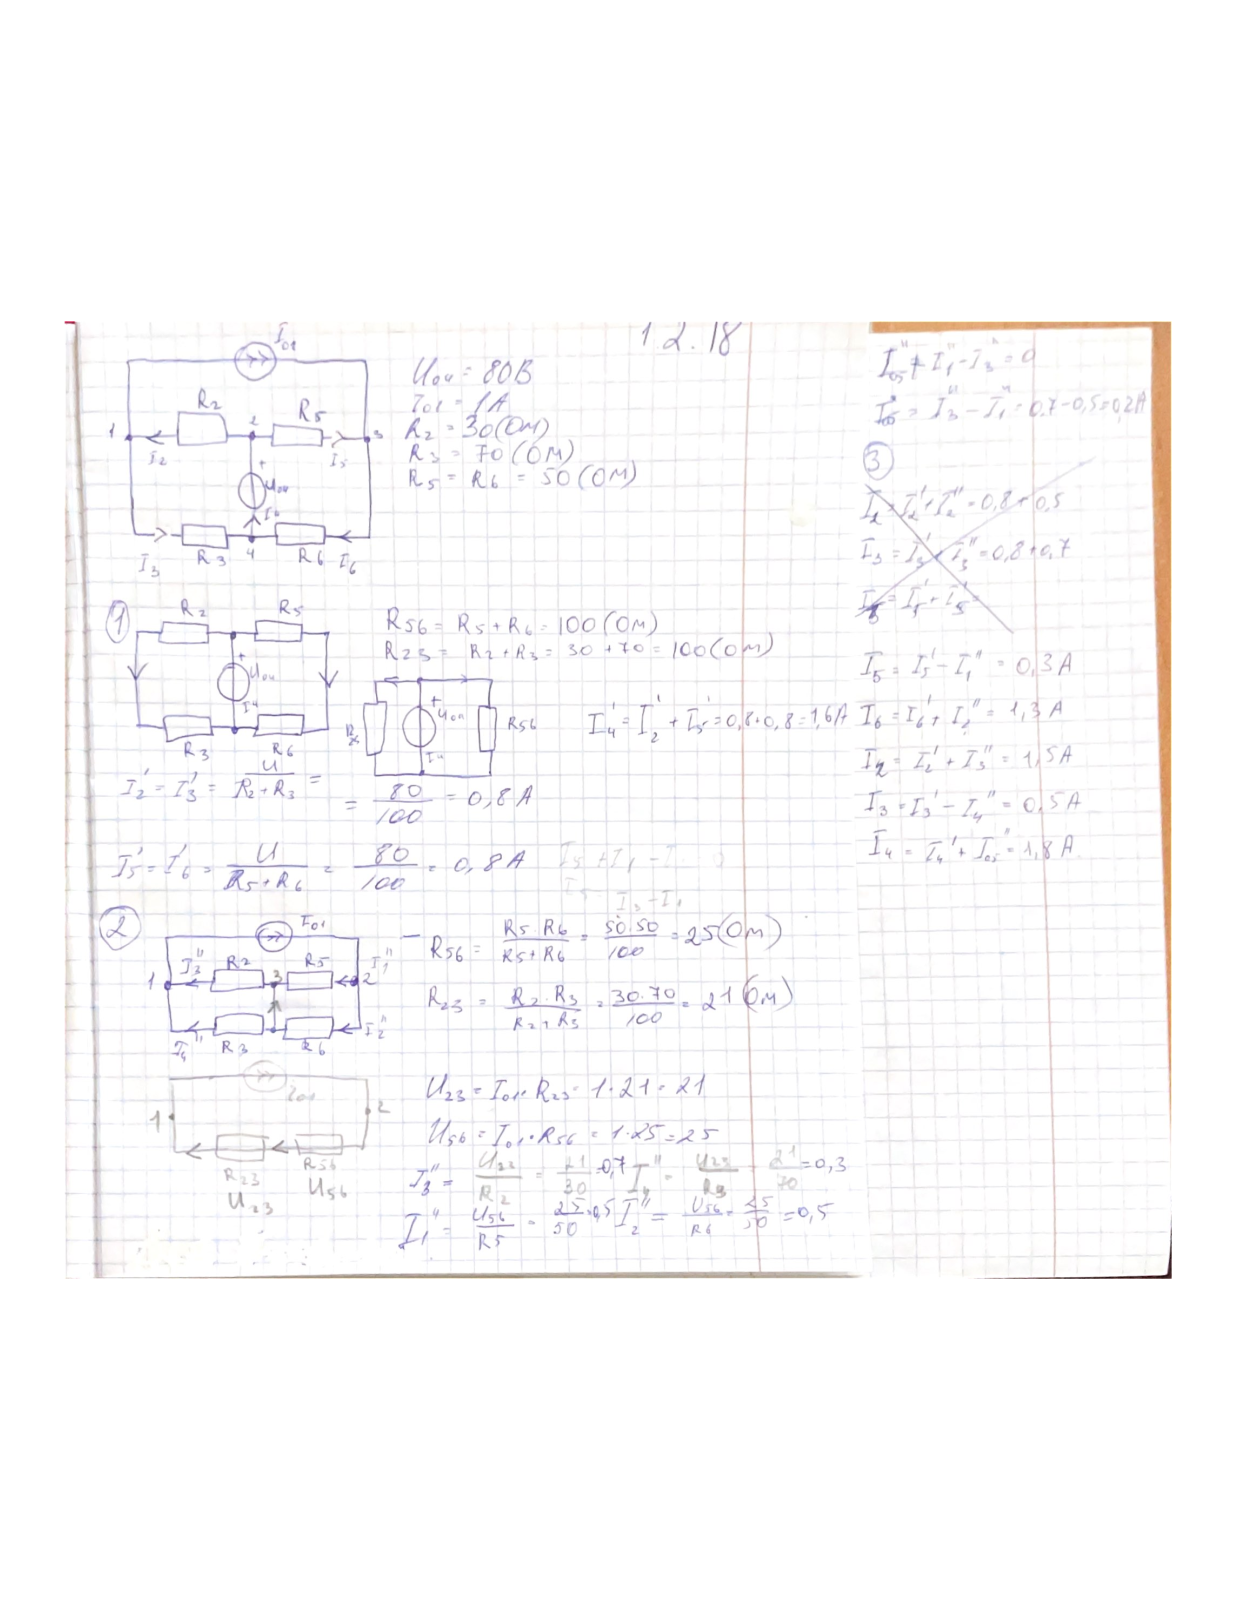 1.2.18
I01
R2
R5
1
2
3
I2
I5
+
U04
I4
I3
R3
4
R6
I6
U04 = 80В
I01 = 1А
R2 = 30 (Ом)
R3 = 70 (Ом)
R5 = R6 = 50 (Ом)
1
R2
R5
+
U04
I4
R3
R6
R56 = R5 + R6 = 100 (Ом)
R23 = R2 + R3 = 30 + 70 = 100 (Ом)
+
U04
R56
I4
I4' = I2' + I5' = 0,8 + 0,8 = 1,6А
I2' = I3' = U / (R2 + R3) =
= 80 / 100 = 0,8 А
I5' = I6' = U / (R5 + R6) = 80 / 100 = 0,8 А
2
I01
I3''
R2
3
R5
I1''
1
2
I4''
R3
R6
I2''
R56 = R5 · R6 / (R5 + R6) = 50 · 50 / 100 = 25 (Ом)
R23 = R2 · R3 / (R2 + R3) = 30 · 70 / 100 = 21 (Ом)
I01
1
2
R23
R56
U23
U56
U23 = I01 · R23 = 1 · 21 = 21
U56 = I01 · R56 = 1 · 25 = 25
I3'' = U23 / R2 = 21 / 30 = 0,7 I4'' = U23 / R3 = 21 / 70 = 0,3
I1'' = U56 / R5 = 25 / 50 = 0,5 I2'' = U56 / R6 = 25 / 50 = 0,5
I05'' + I1'' - I3'' = 0
I05'' = I3'' - I1'' = 0,7 - 0,5 = 0,2 А
3
I2 = I2' + I2'' = 0,8 + 0,5
I3 = I3' + I3'' = 0,8 + 0,7
I5 = I5' - I1'' = 0,3 А
I6 = I6' + I2'' = 1,3 А
I2 = I2' + I3'' = 1,5 А
I3 = I3' - I4'' = 0,5 А
I4 = I4' + I05'' = 1,8 А